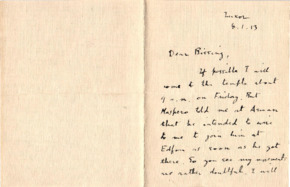 Luxor
8.1.13
Dear Bissing,
If possible I will
come to the temple about
9 a.m. on Friday. But
Maspero told me at Assuan
that he intended to wire
to me to join him at
Edfou as soon as he got
there. So you see my movements
are rather doubtful. I will